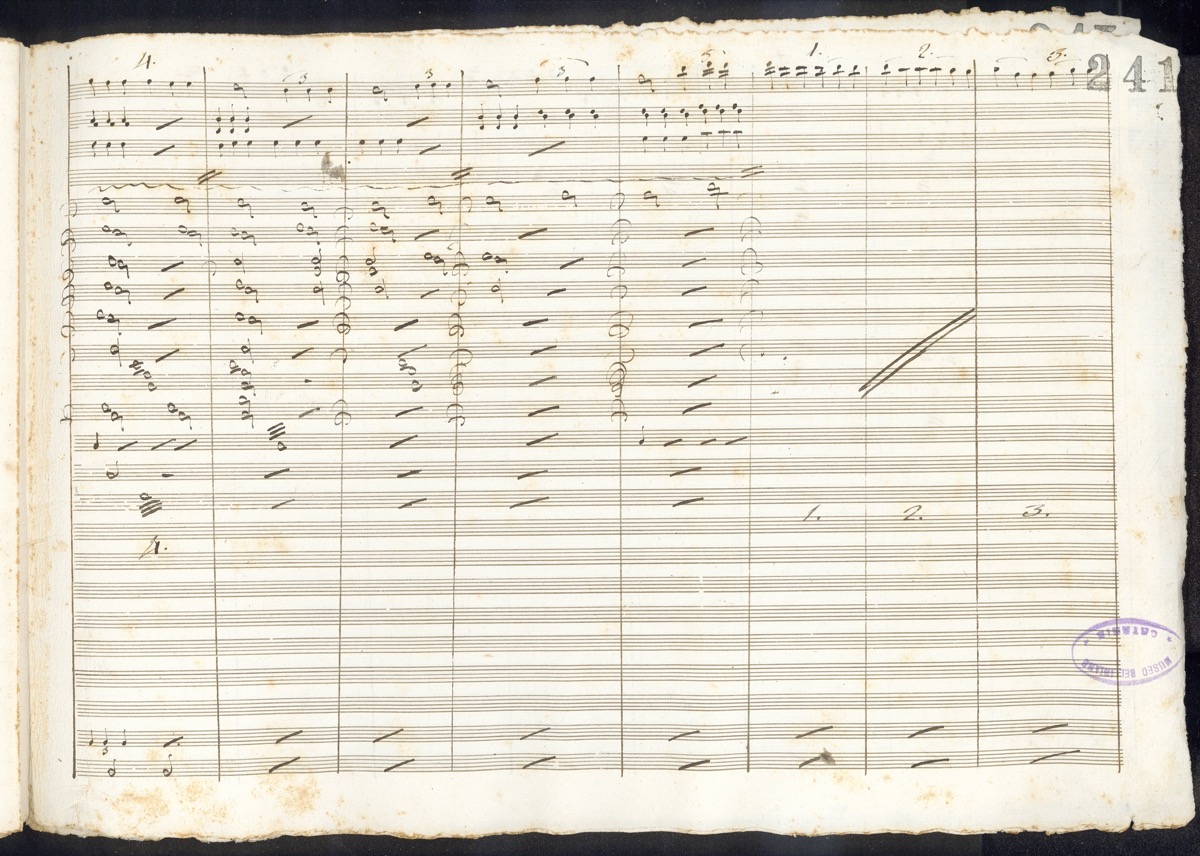 4. 1. 2. 3.
241
3 3 3
1. 2. 3.
4.
3
MUSEO BELLINIANO
* CATANIA *